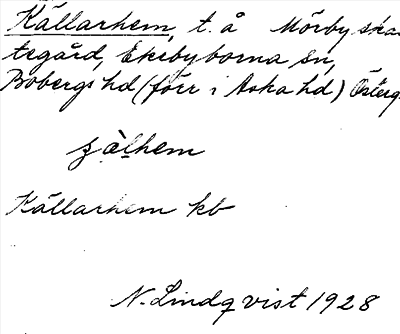 Källarhem, t. å Mörby ska-
tegård, Ekebyborna sn,
Bobergs hd (förr i Aska hd) Österg
zàlhem
Källarhem kb
N. Lindqvist 1928